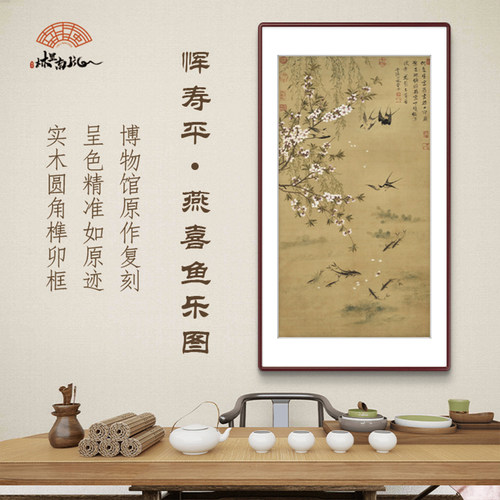 恽寿平·燕喜鱼乐图
博物馆原作复刻
呈色精准如原迹
实木圆角榫卯框